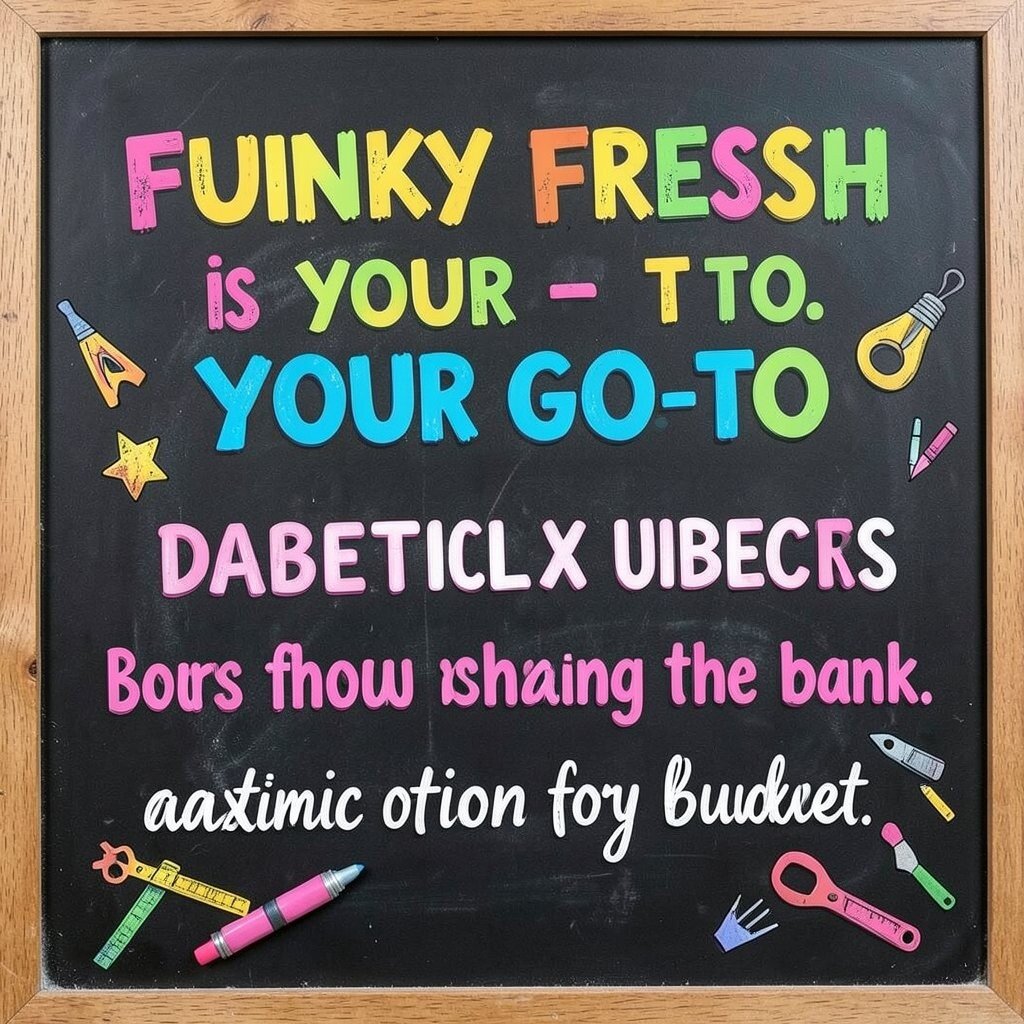 FUINKY FRESSH
is YOUR - T TO.
YOUR GO-TO
DABETICLX UIBECRS
Bours fhow ishaing the bank.
aaxtimic otion foy Buudket.